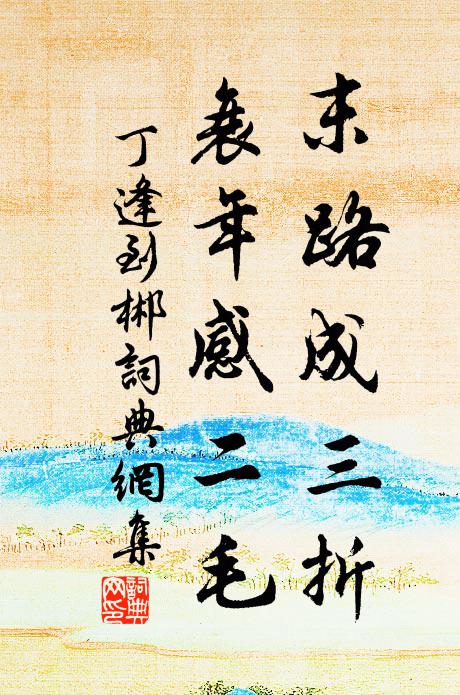 末路成三折
衰年感二毛
丁逢到郴詞典網集
詞典网印